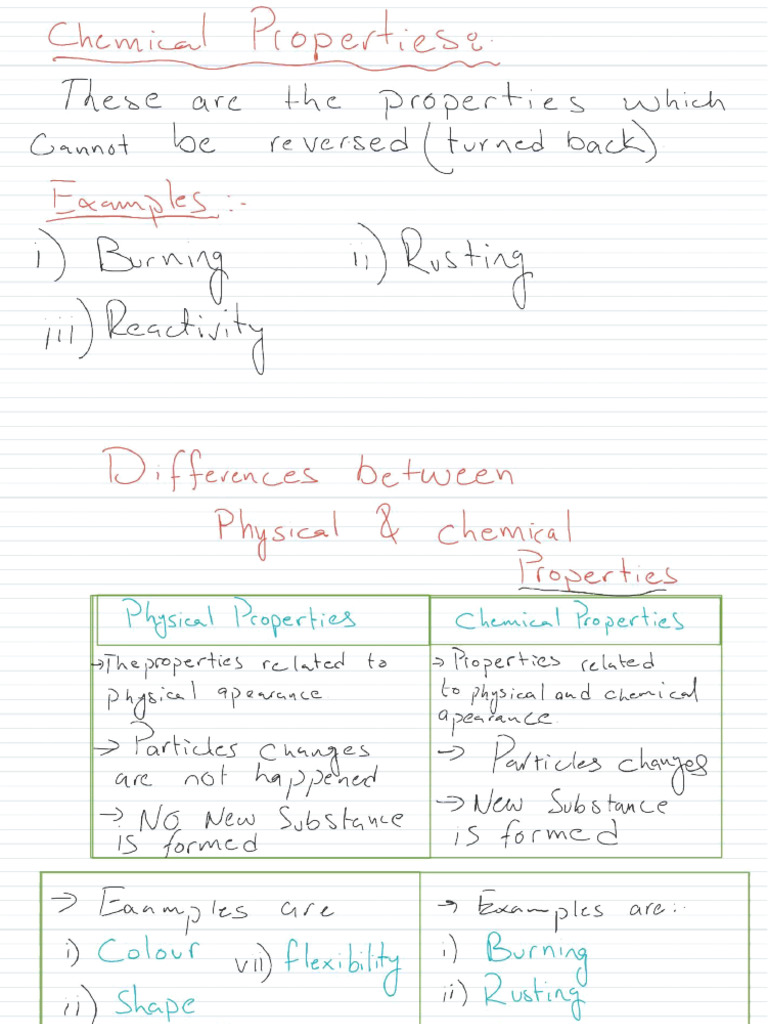 Chemical Properties:
These are the properties which
Cannot be reversed (turned back)
Examples:-
i) Burning ii) Rusting
iii) Reactivity
Differences between
Physical & chemical
Properties
Physical Properties
→ The properties related to
physical apearance
→ Particles changes
are not happened
→ No New Substance
is formed
Chemical Properties
→ Properties related
to physical and chemical
apearance.
→ Particles changes
→ New Substance
is formed
→ Eaamples are
i) Colour vii) flexibility
ii) Shape
→ Examples are:-
i) Burning
ii) Rusting